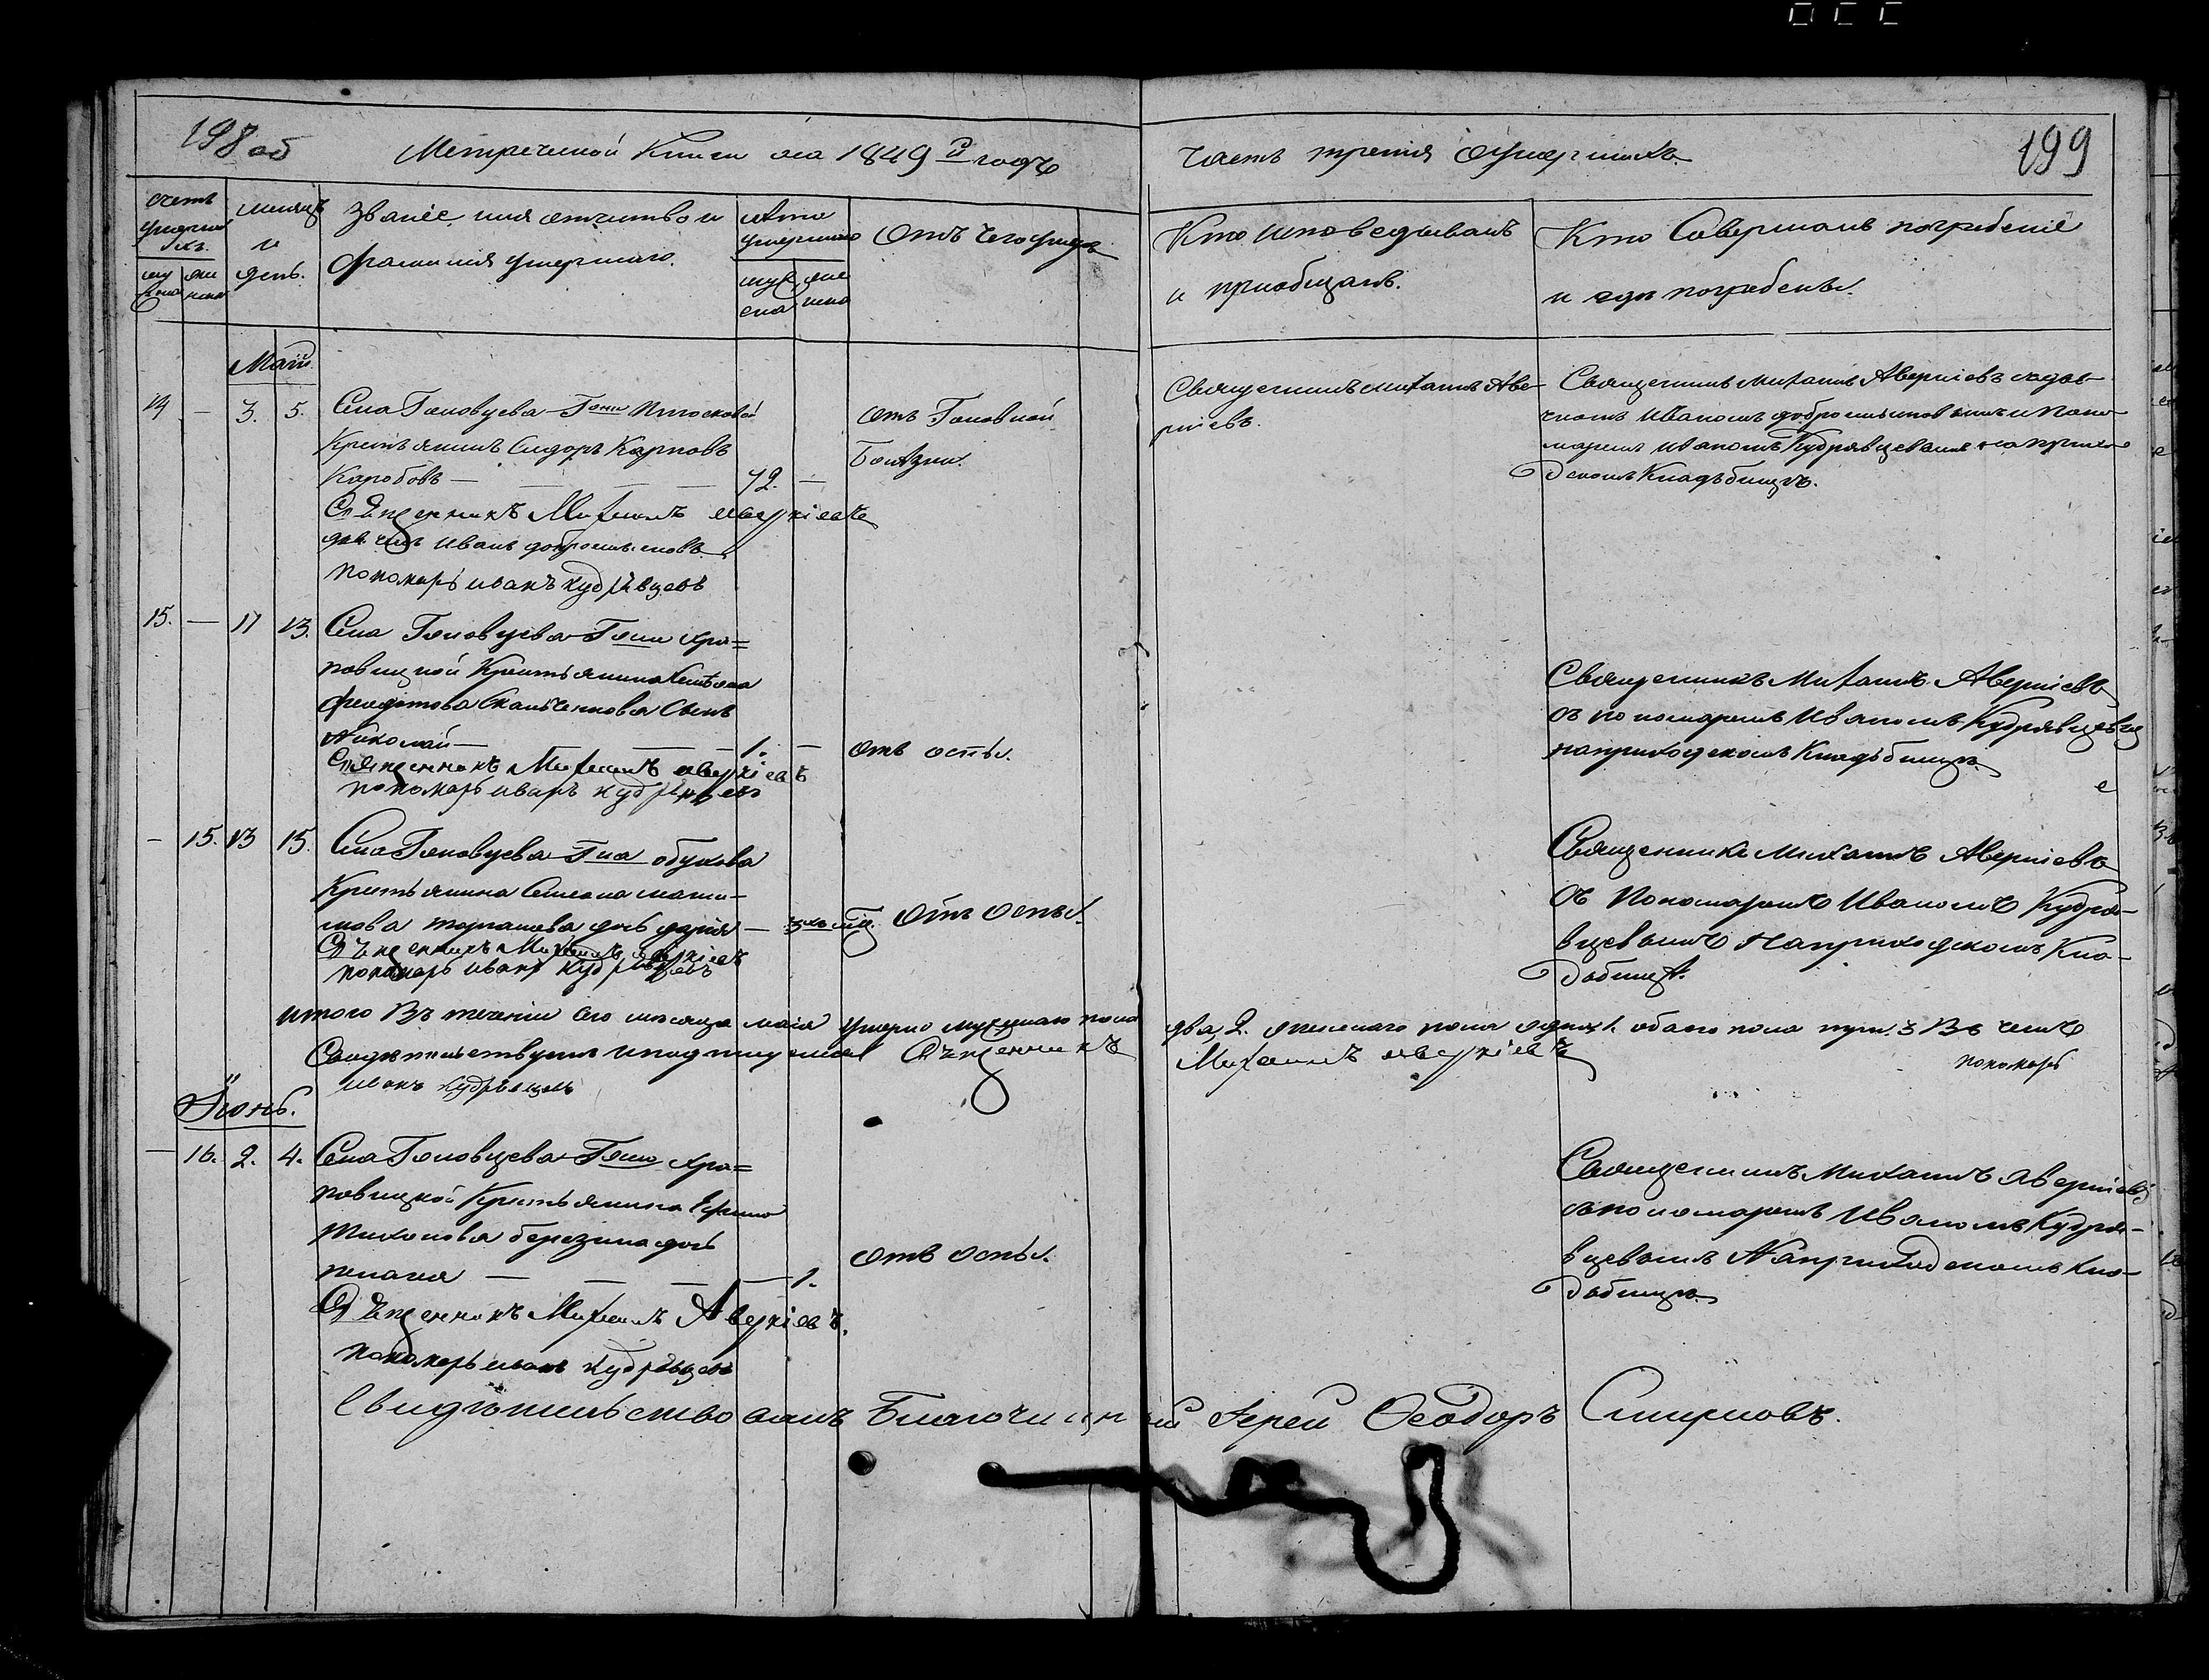 198 об
Метрической Книги на 1849й годъ
часть третія оумершихъ.
199
счетъ умершихъ
мужеска
женска
месяцъ и день.
Званіе, имя отчитво и фамилія умершаго.
лета умершаго
мужеска
женска
Отъ чего умеръ
Кто исповедывалъ и приобщалъ.
Кто Совершалъ погребеніе и где погребены.
Май
14 — 3. 5.
Села Головцева Гжи
Крестьянинъ Сидоръ Карповъ
Коробовъ — 72. —
отъ Головной
Болѣзни.
Священникъ Михаилъ Аверкіевъ
дьячекъ Иванъ добромысловъ
пономарь иванъ кудрявцевъ
Священникъ Михаилъ Аве-
ркіевъ.
Священникъ Михаилъ Аверкіевъ съ дья-
чкомъ Иваномъ добромысловымъ и поно-
маремъ иваномъ Кудрявцевымъ на прихо-
дскомъ Кладьбищѣ.
15. — 11 13.
Села Головцева Гжи хра=
повицкой Крестьянина
федотова Сынъ
Николай — 1. — отъ оспы.
Священникъ Михаилъ аверкіевъ
пономарь иванъ кудрявцевъ
Священникъ Михаилъ Аверкіевъ
съ пономаремъ Иваномъ Кудрявцевым
наприходскомъ Кладьбищѣ.
— 15. 13 15.
Села Головцева Гна обухова
Крестьянина Семена
дочь дарія — 3хъ лѣт. Отъ оспы.
Священникъ Михаилъ аверкіевъ
пономарь иванъ кудрявцевъ
Священникъ Михаилъ Аверкіевъ
съ Пономаремъ Иваномъ Кудря-
вцевымъ Наприходскомъ Кла-
дбищѣ.
итого Въ теченіи сего месяца маія умерло мужескаго пола два, 2. женскаго пола одна, 1. обаего пола 3 Въ чемъ
Свидетельствуемъ и подпиуемся Священникъ Михаилъ аверкіевъ пономарь
иванъ кудрявцевъ
Iюнь.
— 16. 2. 4.
Села Головцева Гжи хра=
повицкой Крестьянина Ефима
Тихонова березина дочь
— 1. отъ оспы.
Священникъ Михаилъ Аверкіевъ.
пономарь иванъ кудрявцевъ
Священникъ Михаилъ Аверкіевъ
съ пономаремъ Иваномъ Кудря-
вцевымъ Наприходскомъ Кла-
дбищѣ.
Свидѣтельствовалъ Благочинный Iерей Ѳеодоръ Смирновъ.